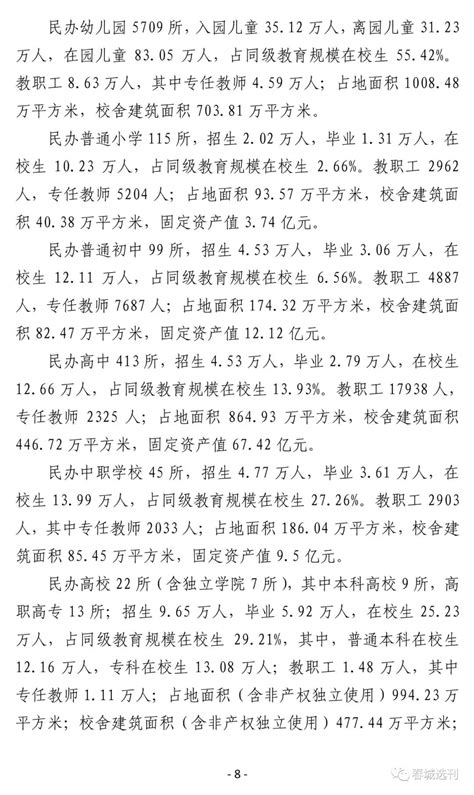 民办幼儿园 5709 所，入园儿童 35.12 万人，离园儿童 31.23
万人，在园儿童 83.05 万人，占同级教育规模在校生 55.42%。
教职工 8.63 万人，其中专任教师 4.59 万人；占地面积 1008.48
万平方米，校舍建筑面积 703.81 万平方米。
民办普通小学 115 所，招生 2.02 万人，毕业 1.31 万人，在
校生 10.23 万人，占同级教育规模在校生 2.66%。教职工 2962
人，专任教师 5204 人；占地面积 93.57 万平方米，校舍建筑面
积 40.38 万平方米，固定资产值 3.74 亿元。
民办普通初中 99 所，招生 4.53 万人，毕业 3.06 万人，在
校生 12.11 万人，占同级教育规模在校生 6.56%。教职工 4887
人，专任教师 7687 人；占地面积 174.32 万平方米，校舍建筑面
积 82.47 万平方米，固定资产值 12.12 亿元。
民办高中 413 所，招生 4.53 万人，毕业 2.79 万人，在校生
12.66 万人，占同级教育规模在校生 13.93%。教职工 17938 人，
专任教师 2325 人；占地面积 864.93 万平方米，校舍建筑面积
446.72 万平方米，固定资产值 67.42 亿元。
民办中职学校 45 所，招生 4.77 万人，毕业 3.61 万人，在校
生 13.99 万人，占同级教育规模在校生 27.26%。教职工 2903
人，其中专任教师 2033 人；占地面积 186.04 万平方米，校舍建
筑面积 85.45 万平方米，固定资产值 9.5 亿元。
民办高校 22 所（含独立学院 7 所），其中本科高校 9 所，高
职高专 13 所；招生 9.65 万人，毕业 5.92 万人，在校生 25.23
万人，占同级教育规模在校生 29.21%，其中，普通本科在校生
12.16 万人，专科在校生 13.08 万人；教职工 1.48 万人，其中
专任教师 1.11 万人；占地面积（含非产权独立使用）994.23 万
平方米；校舍建筑面积（含非产权独立使用）477.44 万平方米；
- 8 -
春城选刊